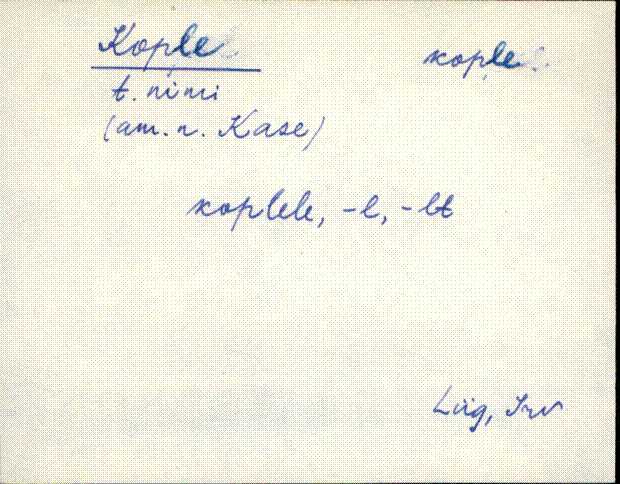 Kople kople
t. nimi
(am. n. Kase)
koplele, -l, -lt
Lüg, Irv